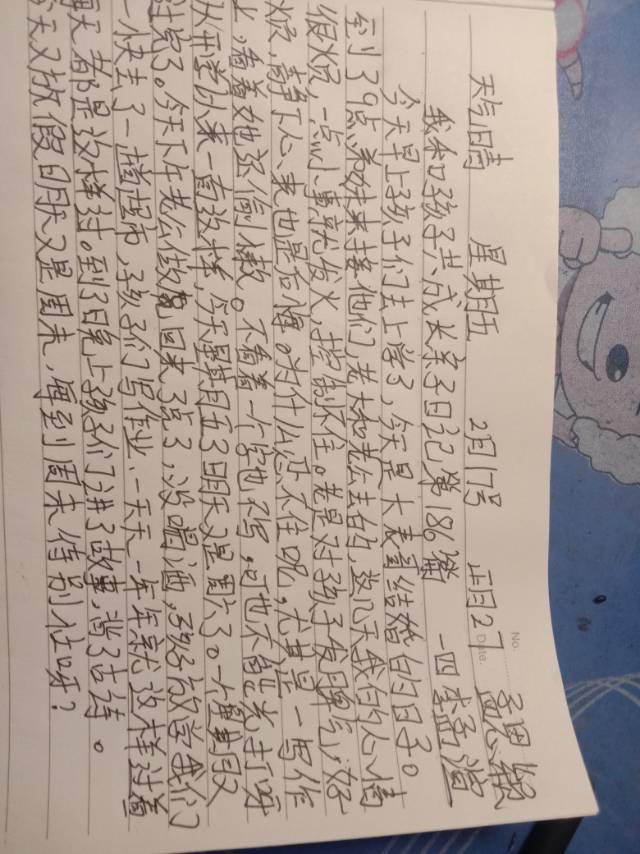 No.
Date.
天气晴 星期五 2月17号 正月27 孟思颖
我和孩子共成长亲子日记第186篇 一四李孟滢
今天早上孩子们去上学了,今天是大表哥结婚的日子。
到了9点弟妹来接他们,老大和老公去的,这几天我的心情
很烦,一点小事就发火,控制不住。老是对孩子发脾气,好
烦,静下心来也是后悔。为什么忍不住呢,尤其是一写作
业,看着她还偷懒。不看着一个字也不写,可也不能光打呀
从开学以来一直这样,今天星期五了明天又是周六了。一个星期又
过完了。今天下午老公做席回来3点了,没喝酒,孩子放学我们
一快去了一趟超市,孩子们写作业,一天天一年年就这样过着
每天都是这样过。到了晚上孩子们讲了故事,背了古诗。
今天又放假明天又是周末,每到周末特别忙呀?